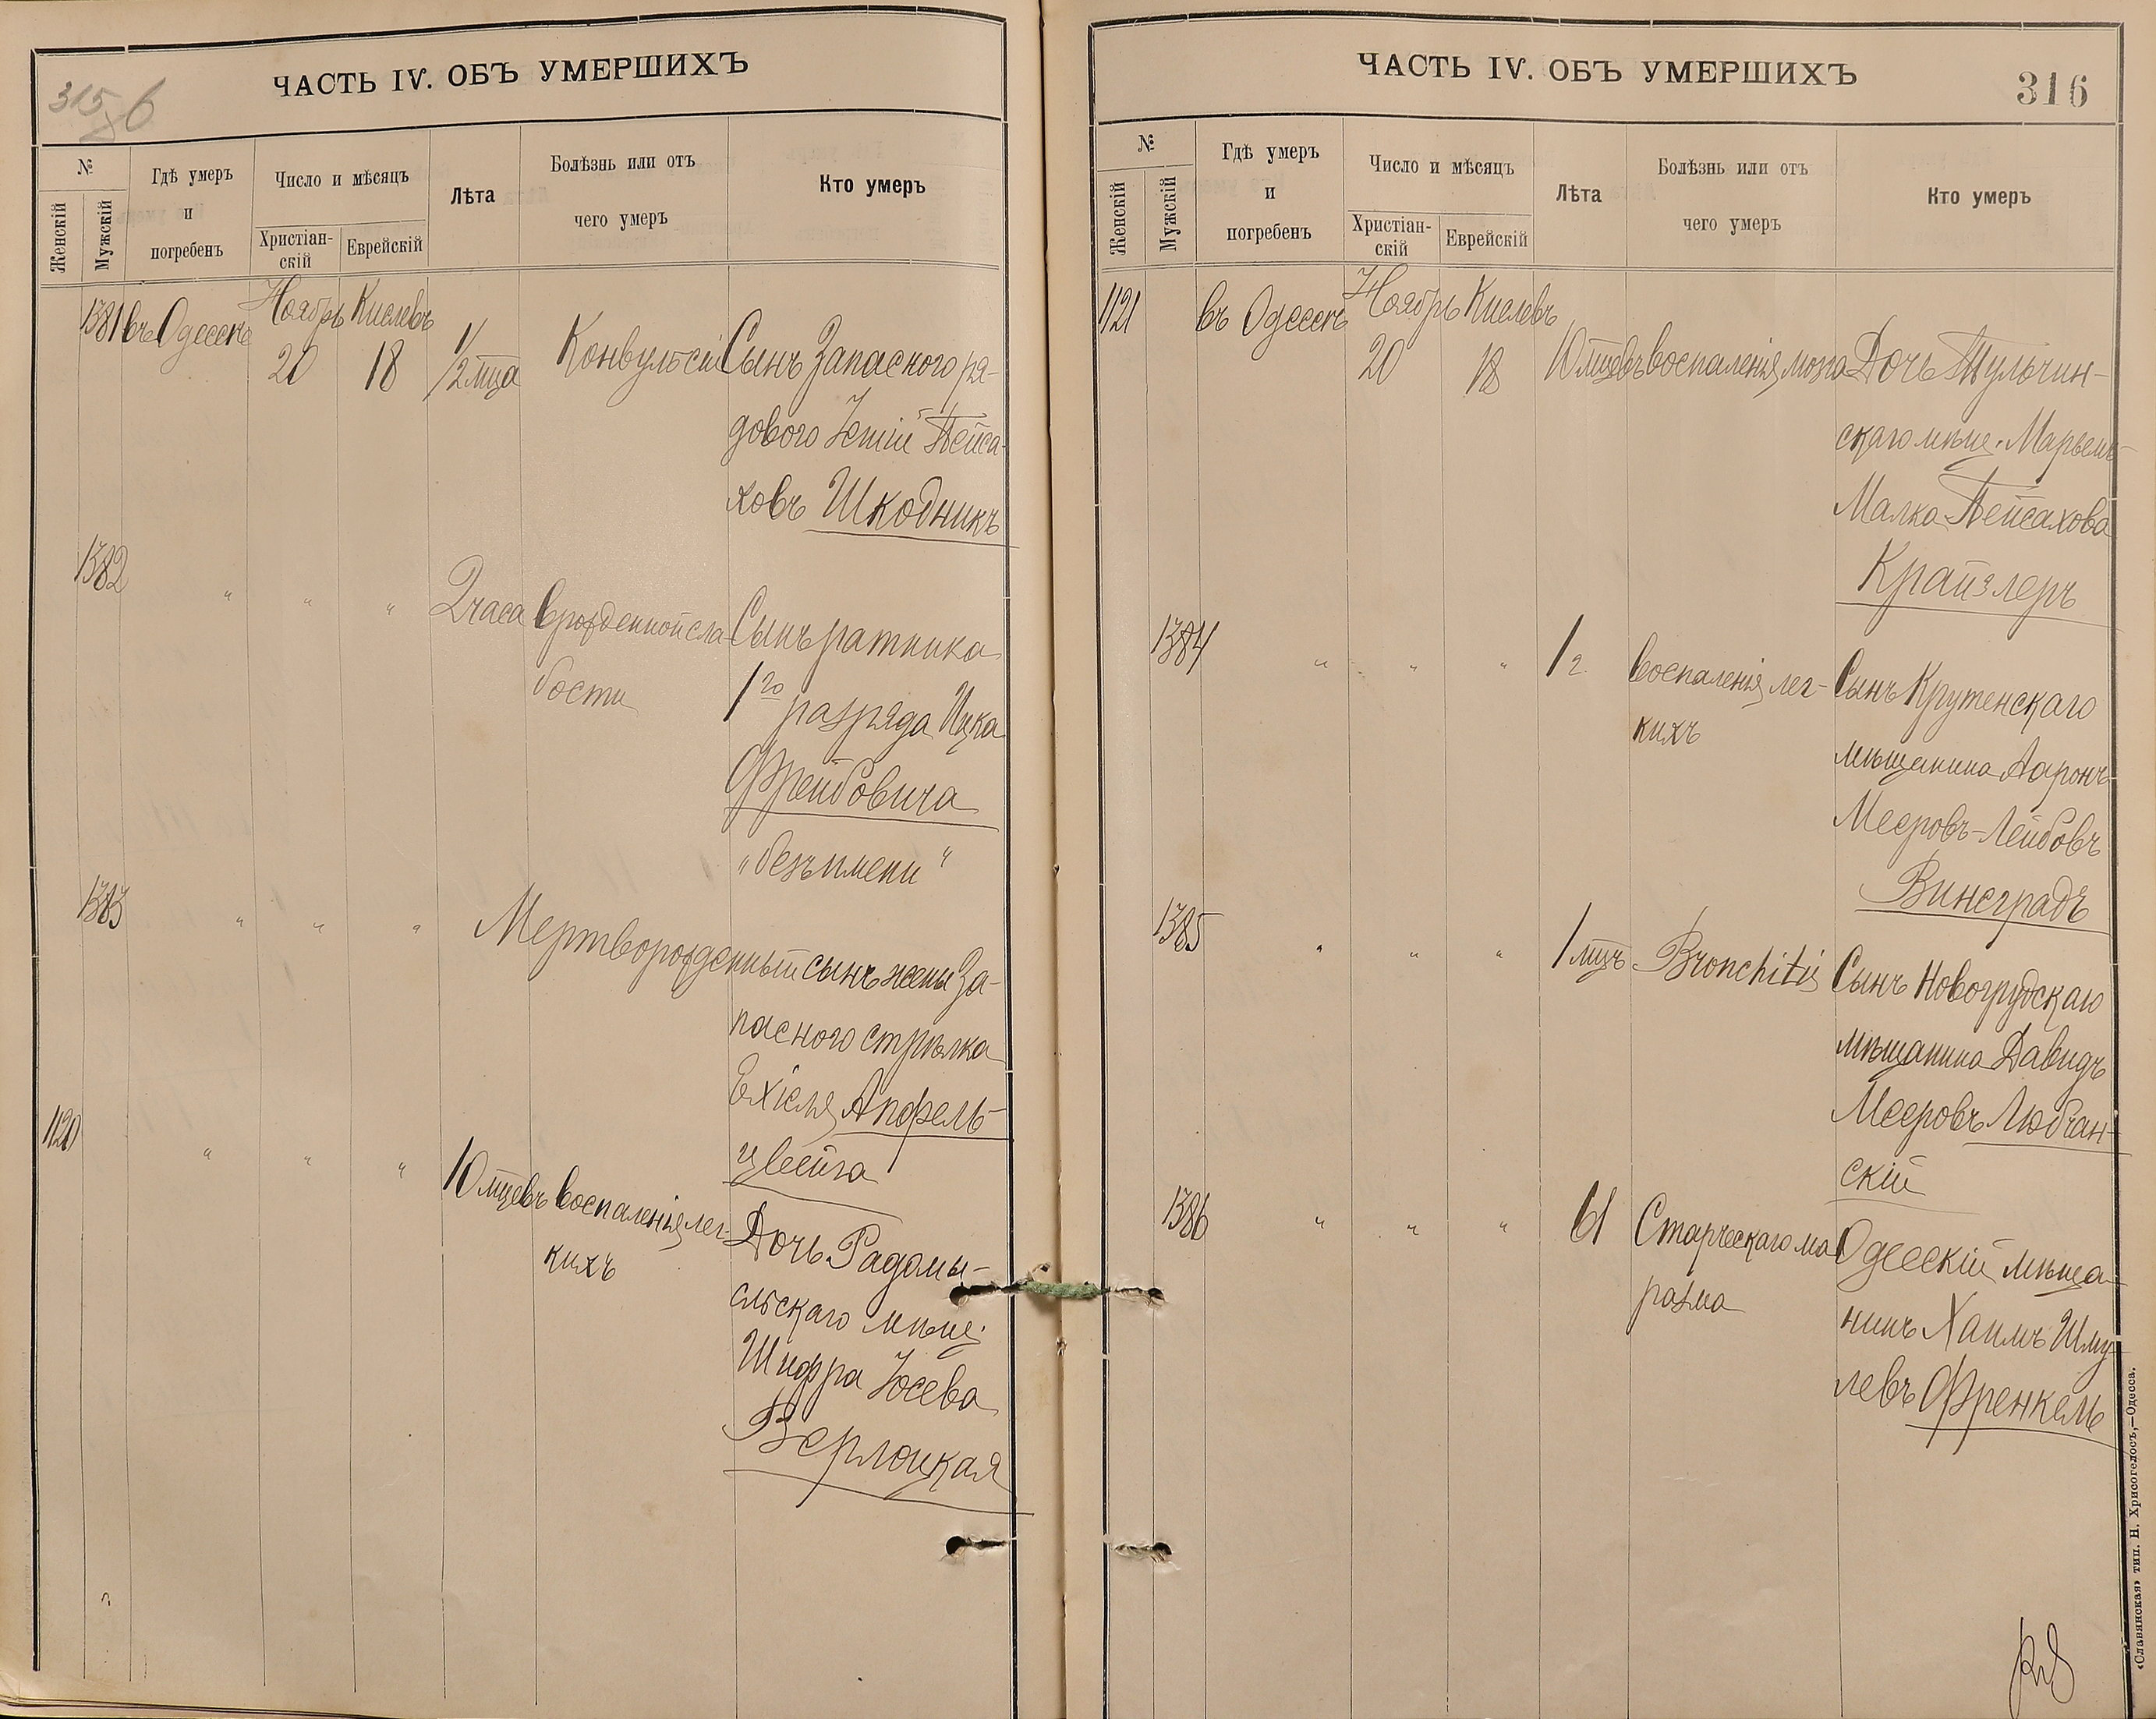 315 об
ЧАСТЬ IV. ОБЪ УМЕРШИХЪ
№
Женскій
Мужскій
Гдѣ умеръ
и
погребенъ
Число и мѣсяцъ
Христіан-
скій
Еврейскій
Лѣта
Болѣзнь или отъ
чего умеръ
Кто умеръ
1381 въ Одессѣ Ноябрь Кислевъ
20 18 1/2 мца Конвульсіи Сынъ Запасного ря-
дового Пейса-
ховъ Шкодникъ
1382 " " " 2 часа врожденной сла- Сынъ ратника
бости 1го разряда Ицка
Фрейбовича
"безъ имени"
1383 " " " Мертворожденный сынъ жены За-
пасного стрѣлка
Ехіеля Апфель-
цвейга
1120 " " " 10 мцевъ воспаленія лег- Дочь Радомы-
кихъ сльскаго мѣщ.
Шифра Іосева
Верлоцкая
ЧАСТЬ IV. ОБЪ УМЕРШИХЪ
316
№
Женскій
Мужскій
Гдѣ умеръ
и
погребенъ
Число и мѣсяцъ
Христіан-
скій
Еврейскій
Лѣта
Болѣзнь или отъ
чего умеръ
Кто умеръ
1121 въ Одессѣ Ноябрь Кислевъ
20 18 10 мцевъ воспаленія мозга Дочь Тульчин-
скаго мѣщ. Марьемъ-
Малка Пейсахова
Крайзлеръ
1384 " " " 1 г. воспаленія лег- Сынъ Крутенскаго
кихъ мѣщанина Ааронъ
Мееровъ-Лейбовъ
Винеградъ
1385 " " " 1 мцъ Bronchitis Сынъ Новогрудскаго
мѣщанина Давидъ
Мееровъ Любчан-
скій
1386 " " " 61 Старческаго ма- Одесскій мѣща-
разма нинъ Хаимъ Шму-
левъ Френкель
«Славянская» тип. Н. Хрисогелосъ,—Одесса.